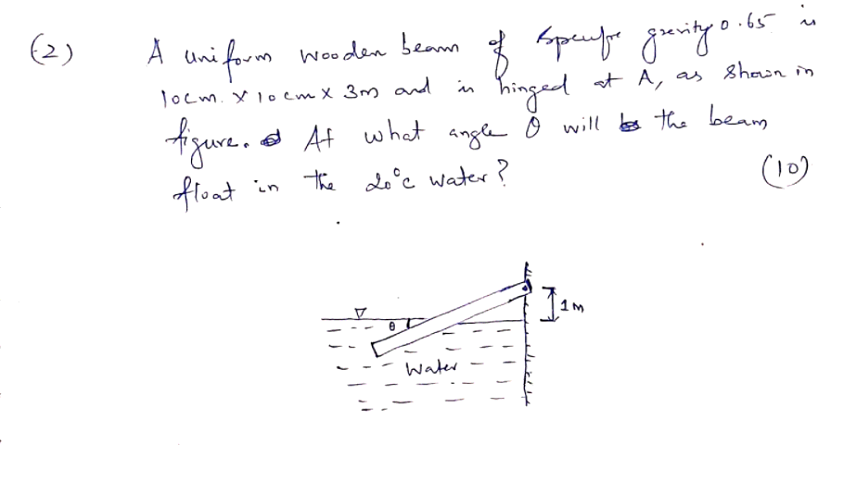 (2) A uniform wooden beam of specific gravity 0.65 is
10cm. X 10cm X 3m and is hinged at A, as shown in
figure. At what angle θ will the beam
float in the 20°C water? (10)
1m
θ
Water